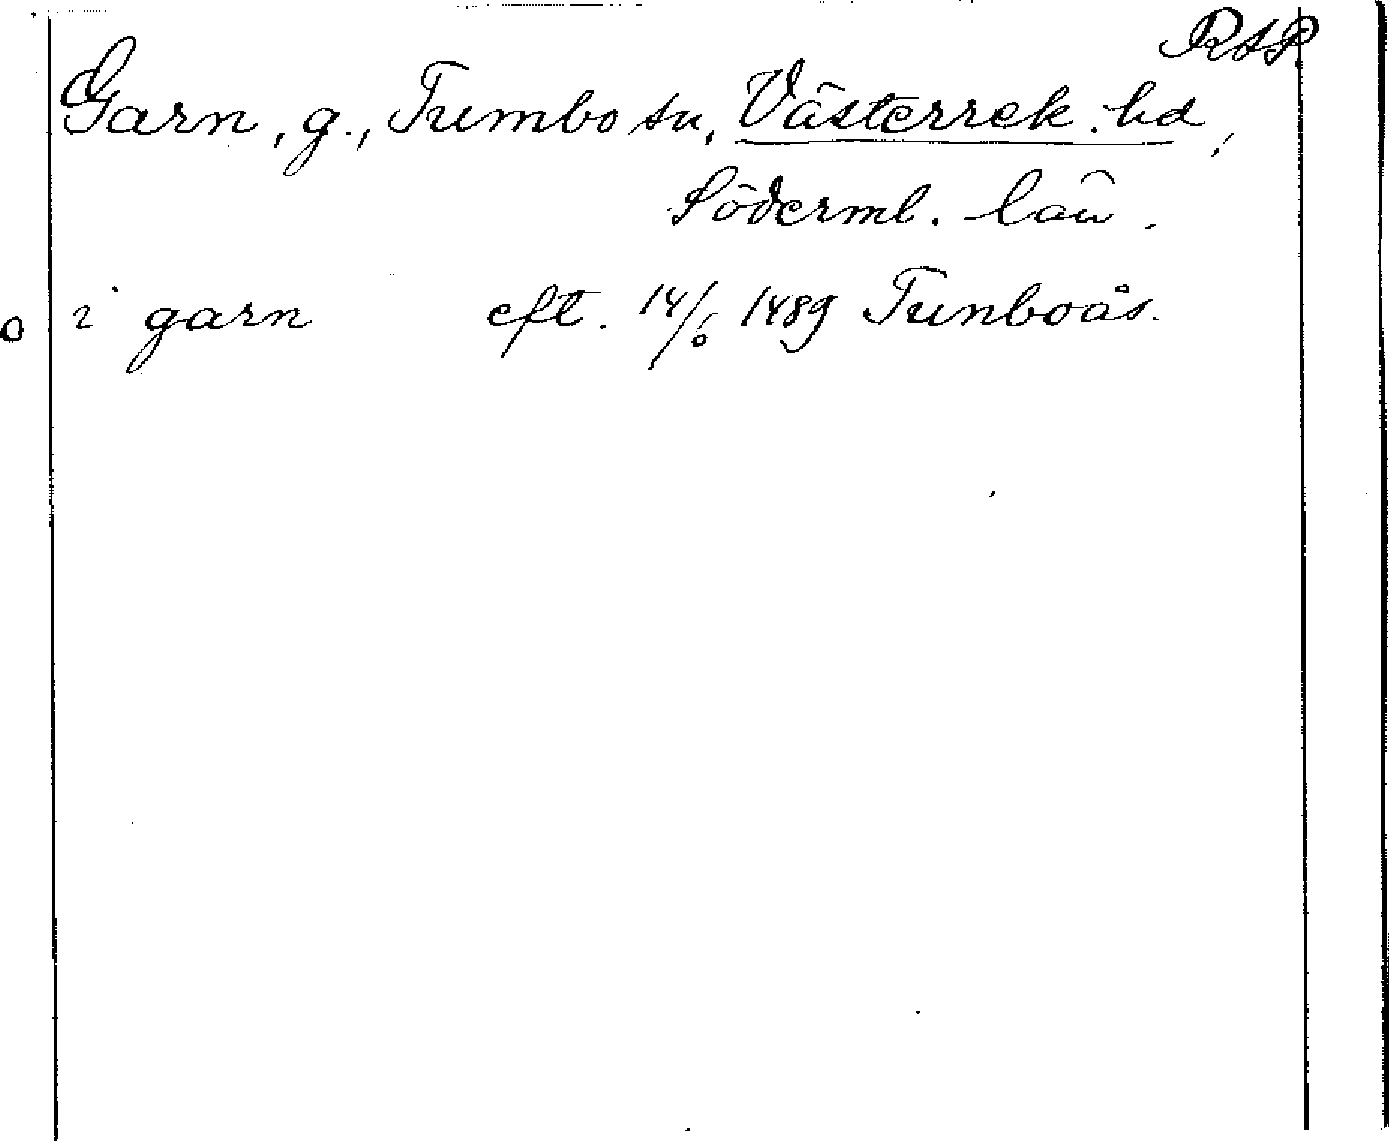 RAP.
Garn, g., Tumbo sn, Västerrek. hd,
Söderml. län.
i garn eft. 14/6 1489 Tunboås.